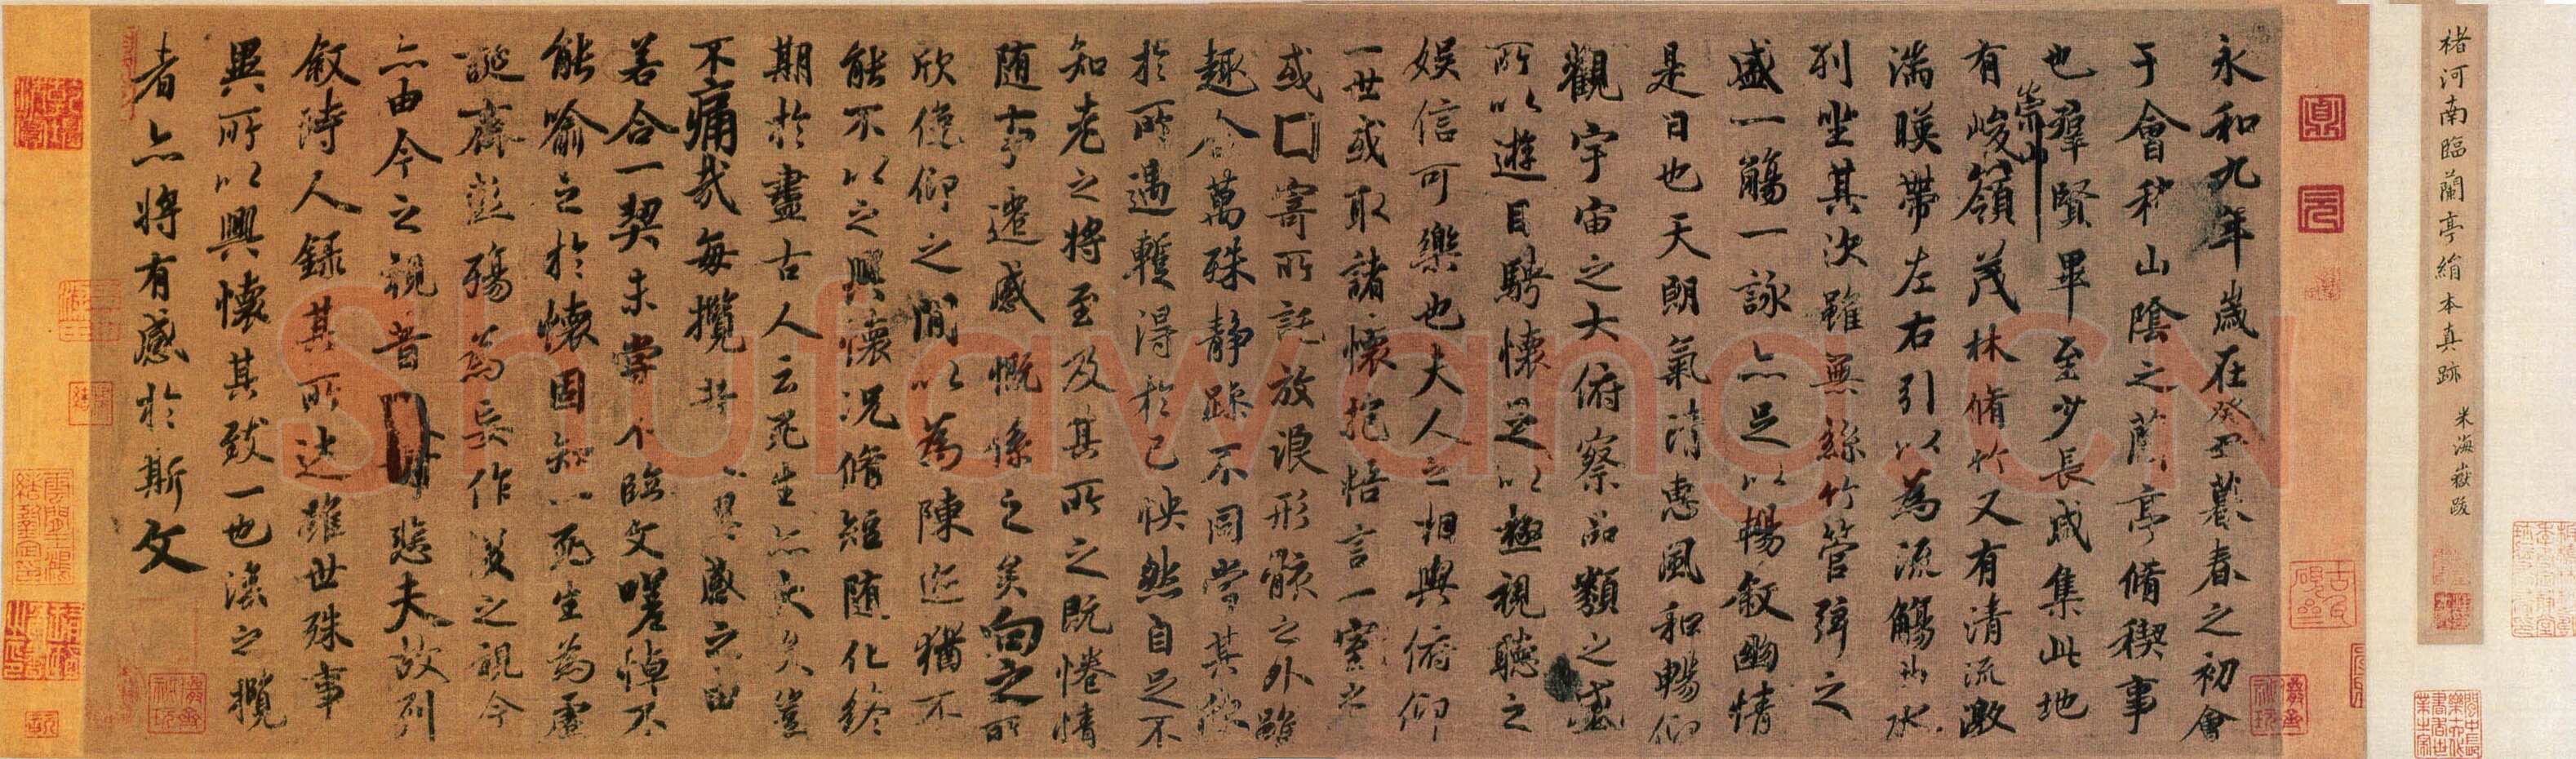 褚河南臨蘭亭絹本真跡 米海嶽跋
永和九年歲在癸丑暮春之初會
于會稽山陰之蘭亭脩稧事
也羣賢畢至少長咸集此地
有崇山峻嶺茂林脩竹又有清流激
湍暎帶左右引以為流觴曲水
列坐其次雖無絲竹管弦之
盛一觴一詠亦足以暢敘幽情
是日也天朗氣清惠風和暢仰
觀宇宙之大俯察品類之盛
所以遊目騁懷足以極視聽之
娛信可樂也夫人之相與俯仰
一世或取諸懷抱悟言一室之
或囗寄所託放浪形骸之外雖
趣舍萬殊靜躁不同當其欣
於所遇蹔得於己怏然自足不
知老之將至及其所之既惓情
隨事遷感慨係之矣向之所
欣俛仰之閒以為陳迹猶不
能不以之興懷況脩短隨化終
期於盡古人云死生亦大矣豈
不痛哉每攬昔人興感之由
若合一契未嘗不臨文嗟悼不
能喻之於懷固知一死生為虛
誕齊彭殤為妄作後之視今
亦由今之視昔悲夫故列
敘時人錄其所述雖世殊事
異所以興懷其致一也後之攬
者亦將有感於斯文
Shufawang.CN